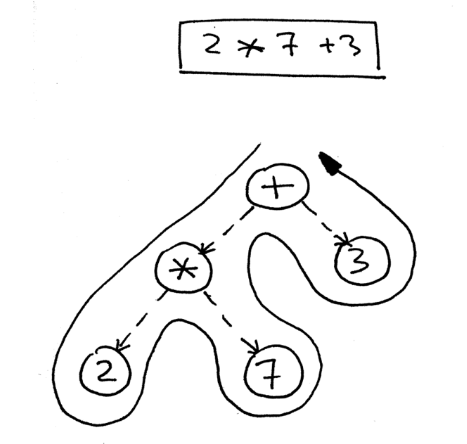 2 * 7 + 3
+
* 3
2 7